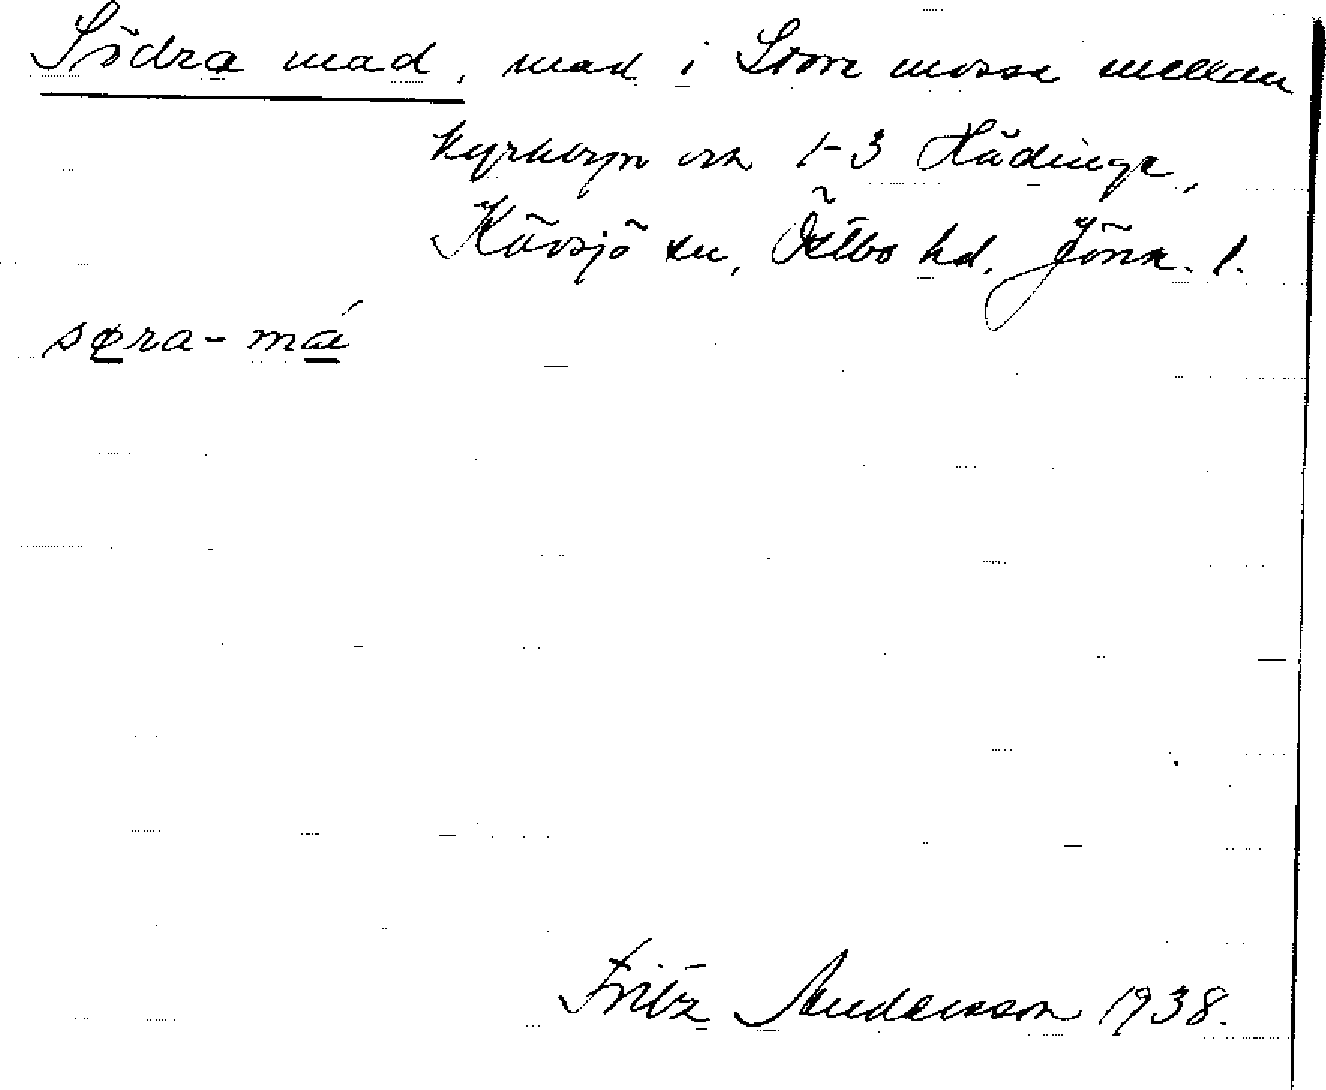 Södra mad, mad i Store mosse mellan
kyrkbyn och 1-3 Hädinge,
Kävsjö sn, Östbo hd. Jönk. l.
søra-má
Fritz Andersson 1938.